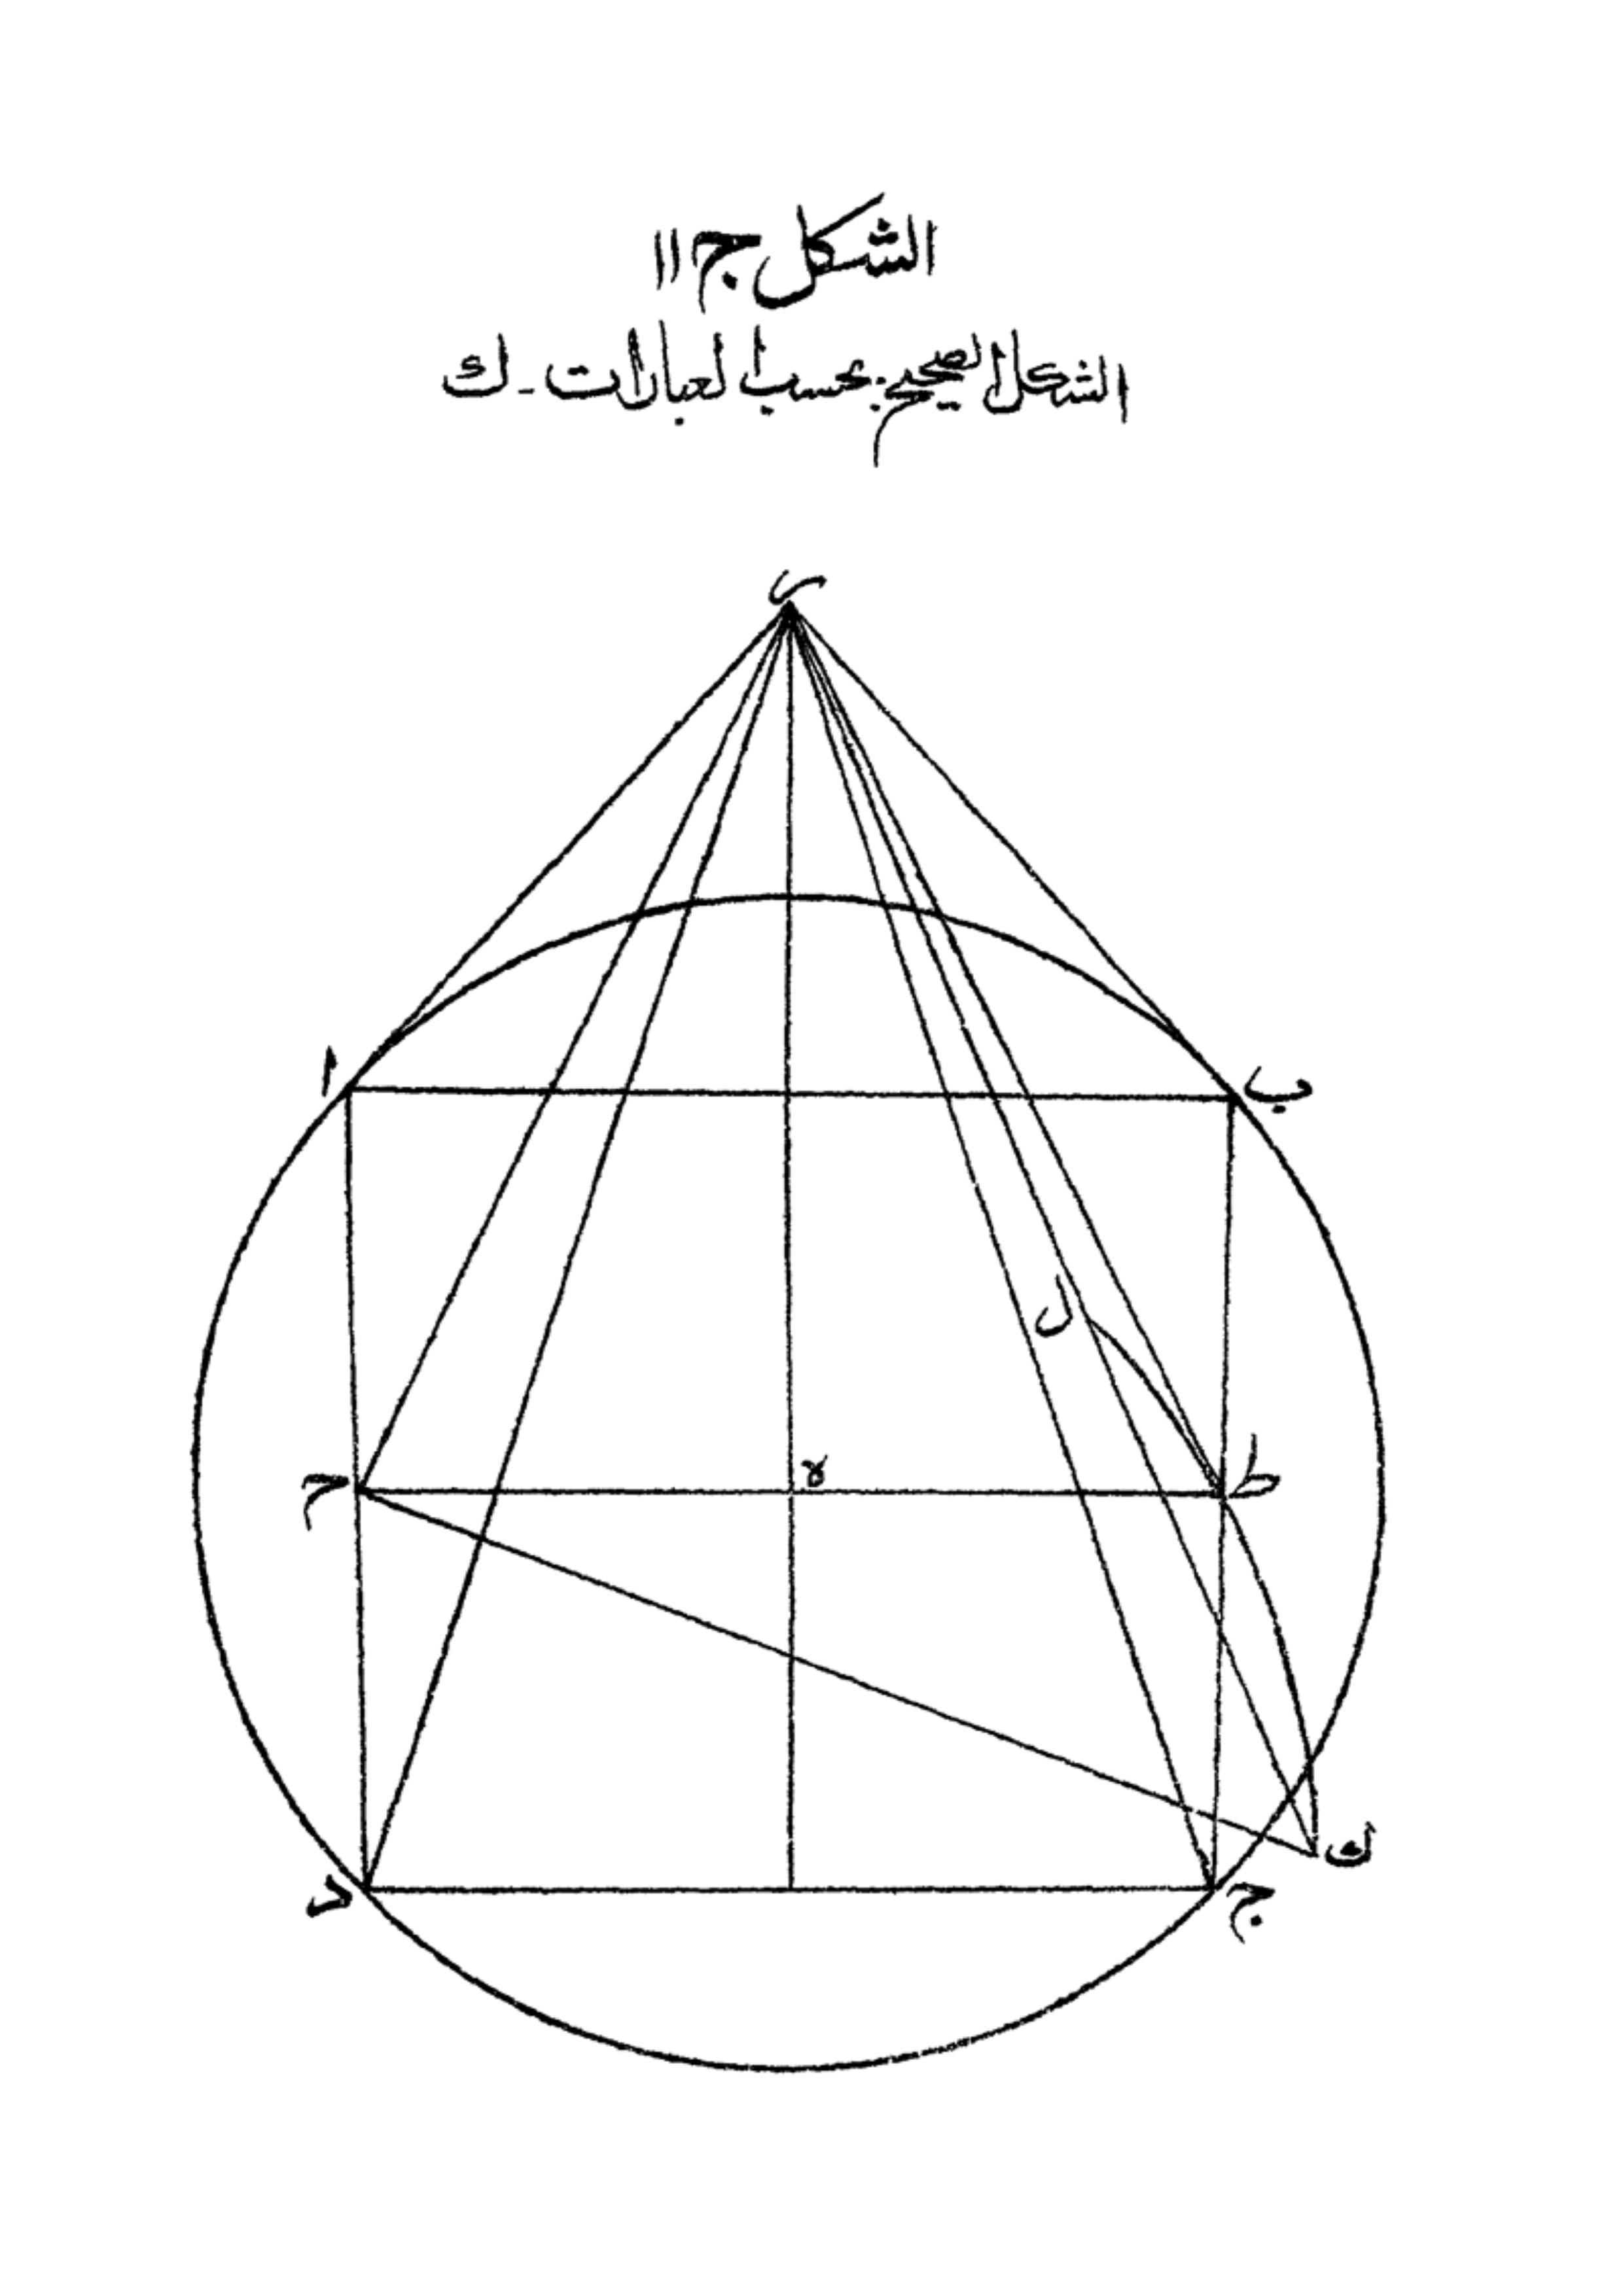 الشكل ج ١١
الشكل الصحيح بحسب العبارات - ك
ر
ا
ب
ل
ح
ه
ط
ك
د
ج